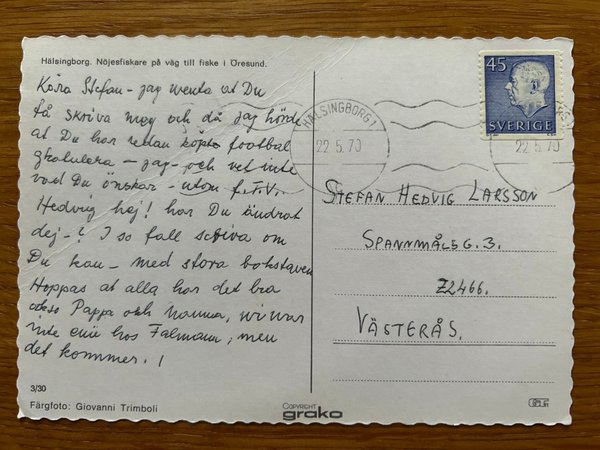 Hälsingborg. Nöjesfiskare på väg till fiske i Öresund.
Kära Stefan – jag menta at Du
få skriva mej och då jag hörde
at Du har redan köpt football
gratulera – jag – och vet inte
vad Du önskar – utom f.t.v.
Hedvig hej! har Du ändrat
dej –? I so fall scriva om
Du kan – med stora bokstaven
Hoppas at alla har det bra
också Pappa och Mamma, vi var
inte hos Falmann, men
det kommer. !
3/30
Färgfoto: Giovanni Trimboli
COPYRIGHT
grako
45
SVERIGE
HÄLSINGBORG 1
22.5.70
22.5.70
STEFAN HEDVIG LARSSON
SPANNMÅLSG. 3.
72466.
VÄSTERÅS.